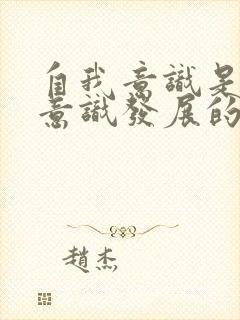 自我意識是
意識發展的
趙杰